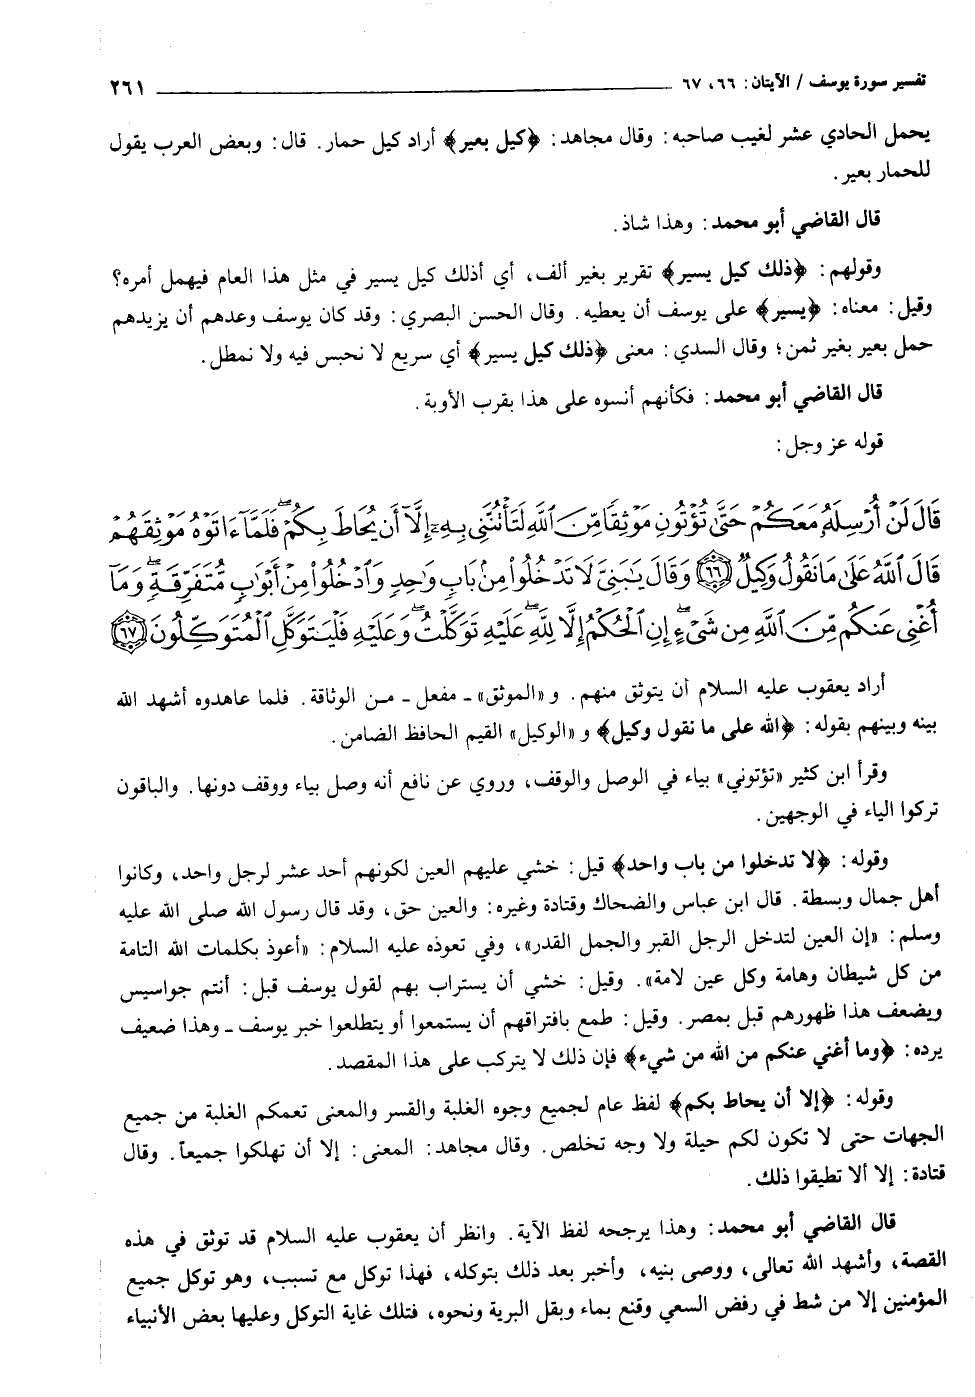 تفسير سورة يوسف / الآيتان: ٦٦، ٦٧ ـــــــــ ٢٦١
يحمل الحادي عشر لغيب صاحبه: وقال مجاهد: ﴿كيل بعير﴾ أراد كيل حمار. قال: وبعض العرب يقول
للحمار بعير.
قال القاضي أبو محمد: وهذا شاذ.
وقولهم: ﴿ذلك كيل يسير﴾ تقرير بغير ألف، أي أذلك كيل يسير في مثل هذا العام فيهمل أمره؟
وقيل: معناه: ﴿يسير﴾ على يوسف أن يعطيه. وقال الحسن البصري: وقد كان يوسف وعدهم أن يزيدهم
حمل بعير بغير ثمن؛ وقال السدي: معنى ﴿ذلك كيل يسير﴾ أي سريع لا نحبس فيه ولا نمطل.
قال القاضي أبو محمد: فكأنهم أنسوه على هذا بقرب الأوبة.
قوله عز وجل:
قَالَ لَنْ أُرْسِلَهُۥ مَعَكُمْ حَتَّىٰ تُؤْتُونِ مَوْثِقًا مِّنَ ٱللَّهِ لَتَأْتُنَّنِى بِهِۦٓ إِلَّآ أَن يُحَاطَ بِكُمْ ۖ فَلَمَّآ ءَاتَوْهُ مَوْثِقَهُمْ
قَالَ ٱللَّهُ عَلَىٰ مَا نَقُولُ وَكِيلٌ ﴿٦٦﴾ وَقَالَ يَٰبَنِىَّ لَا تَدْخُلُوا۟ مِنۢ بَابٍ وَٰحِدٍ وَٱدْخُلُوا۟ مِنْ أَبْوَٰبٍ مُّتَفَرِّقَةٍ ۖ وَمَآ
أُغْنِى عَنكُم مِّنَ ٱللَّهِ مِن شَىْءٍ ۖ إِنِ ٱلْحُكْمُ إِلَّا لِلَّهِ ۖ عَلَيْهِ تَوَكَّلْتُ ۖ وَعَلَيْهِ فَلْيَتَوَكَّلِ ٱلْمُتَوَكِّلُونَ ﴿٦٧﴾
أراد يعقوب عليه السلام أن يتوثق منهم. و «الموثق» ـ مفعل ـ من الوثاقة. فلما عاهدوه أشهد الله
بينه وبينهم بقوله: ﴿الله على ما نقول وكيل﴾ و «الوكيل» القيم الحافظ الضامن.
وقرأ ابن كثير «تؤتوني» بياء في الوصل والوقف، وروي عن نافع أنه وصل بياء ووقف دونها. والباقون
تركوا الياء في الوجهين.
وقوله: ﴿لا تدخلوا من باب واحد﴾ قيل: خشي عليهم العين لكونهم أحد عشر لرجل واحد، وكانوا
أهل جمال وبسطة. قال ابن عباس والضحاك وقتادة وغيره: والعين حق، وقد قال رسول الله صلى الله عليه
وسلم: «إن العين لتدخل الرجل القبر والجمل القدر»، وفي تعوذه عليه السلام: «أعوذ بكلمات الله التامة
من كل شيطان وهامة وكل عين لامة». وقيل: خشي أن يستراب بهم لقول يوسف قبل: أنتم جواسيس
ويضعف هذا ظهورهم قبل بمصر. وقيل: طمع بافتراقهم أن يستمعوا أو يتطلعوا خبر يوسف ـ وهذا ضعيف
يرده: ﴿وما أغني عنكم من الله من شيء﴾ فإن ذلك لا يتركب على هذا المقصد.
وقوله: ﴿إلا أن يحاط بكم﴾ لفظ عام لجميع وجوه الغلبة والقسر والمعنى تعمكم الغلبة من جميع
الجهات حتى لا تكون لكم حيلة ولا وجه تخلص. وقال مجاهد: المعنى: إلا أن تهلكوا جميعاً. وقال
قتادة: إلا ألا تطيقوا ذلك.
قال القاضي أبو محمد: وهذا يرجحه لفظ الآية. وانظر أن يعقوب عليه السلام قد توثق في هذه
القصة، وأشهد الله تعالى، ووصى بنيه، وأخبر بعد ذلك بتوكله، فهذا توكل مع تسبب، وهو توكل جميع
المؤمنين إلا من شط في رفض السعي وقنع بماء وبقل البرية ونحوه، فتلك غاية التوكل وعليها بعض الأنبياء